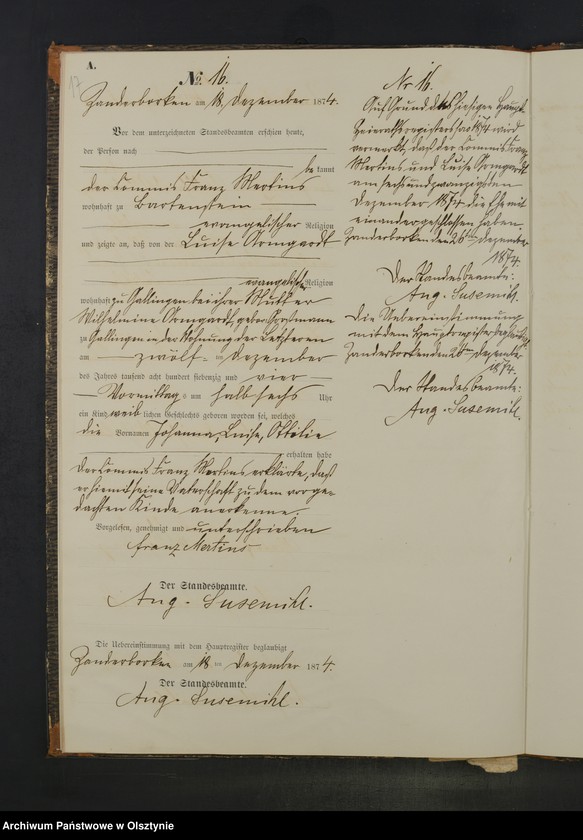 A.
17
No. 16.
Zanderborken am 18. Dezember 1874.
Vor dem unterzeichneten Standesbeamten erschien heute,
der Person nach
be kannt
der Commis Franz Mertins
wohnhaft zu Bartenstein
evangelischer Religion
und zeigte an, daß von der Luise Armgardt
evangelischer Religion
wohnhaft zu Gallingen bei ihrer Mutter
Wilhelmine Armgardt, geborne
zu Gallingen in der Wohnung der Letzteren
am zwölf ten Dezember
des Jahres tausend acht hundert siebenzig und vier
Vormittags um halb sechs Uhr
ein Kind weib lichen Geschlechts geboren worden sei, welches
die Vornamen Johanna, Luise, Ottilie
erhalten habe
Der Commis Franz Mertins erklärte, daß
er hiermit seine Vaterschaft zu dem vorge-
dachten Kinde anerkenne.
Vorgelesen, genehmigt und unterschrieben
Franz Mertins
Der Standesbeamte.
Aug. Susemihl.
Die Uebereinstimmung mit dem Hauptregister beglaubigt
Zanderborken am 18 ten Dezember 1874.
Der Standesbeamte.
Aug. Susemihl.
Nr 16.
Auf Grund des hiesigen Haupt-
Heirathsregisters pro 1874 wird
vermerkt, daß der Commis Franz
Mertins und Luise Armgardt
am sechsundzwanzigsten
Dezember 1874 die Ehe mit
einander geschlossen haben.
Zanderborken den 26ten Dezember
1874.
Der Standesbeamte:
Aug. Susemihl.
Die Uebereinstimmung
mit dem Hauptregister beglaubigt
Zanderborken den 26ten Dezember
1874.
Der Standesbeamte:
Aug. Susemihl.
Archiwum Państwowe w Olsztynie